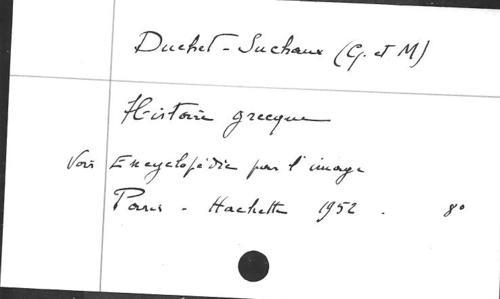 Duchet-Suchaux (G. et M)
Histoire grecque
Voir Encyclopédie par l'image
Paris - Hachette 1952. 8°